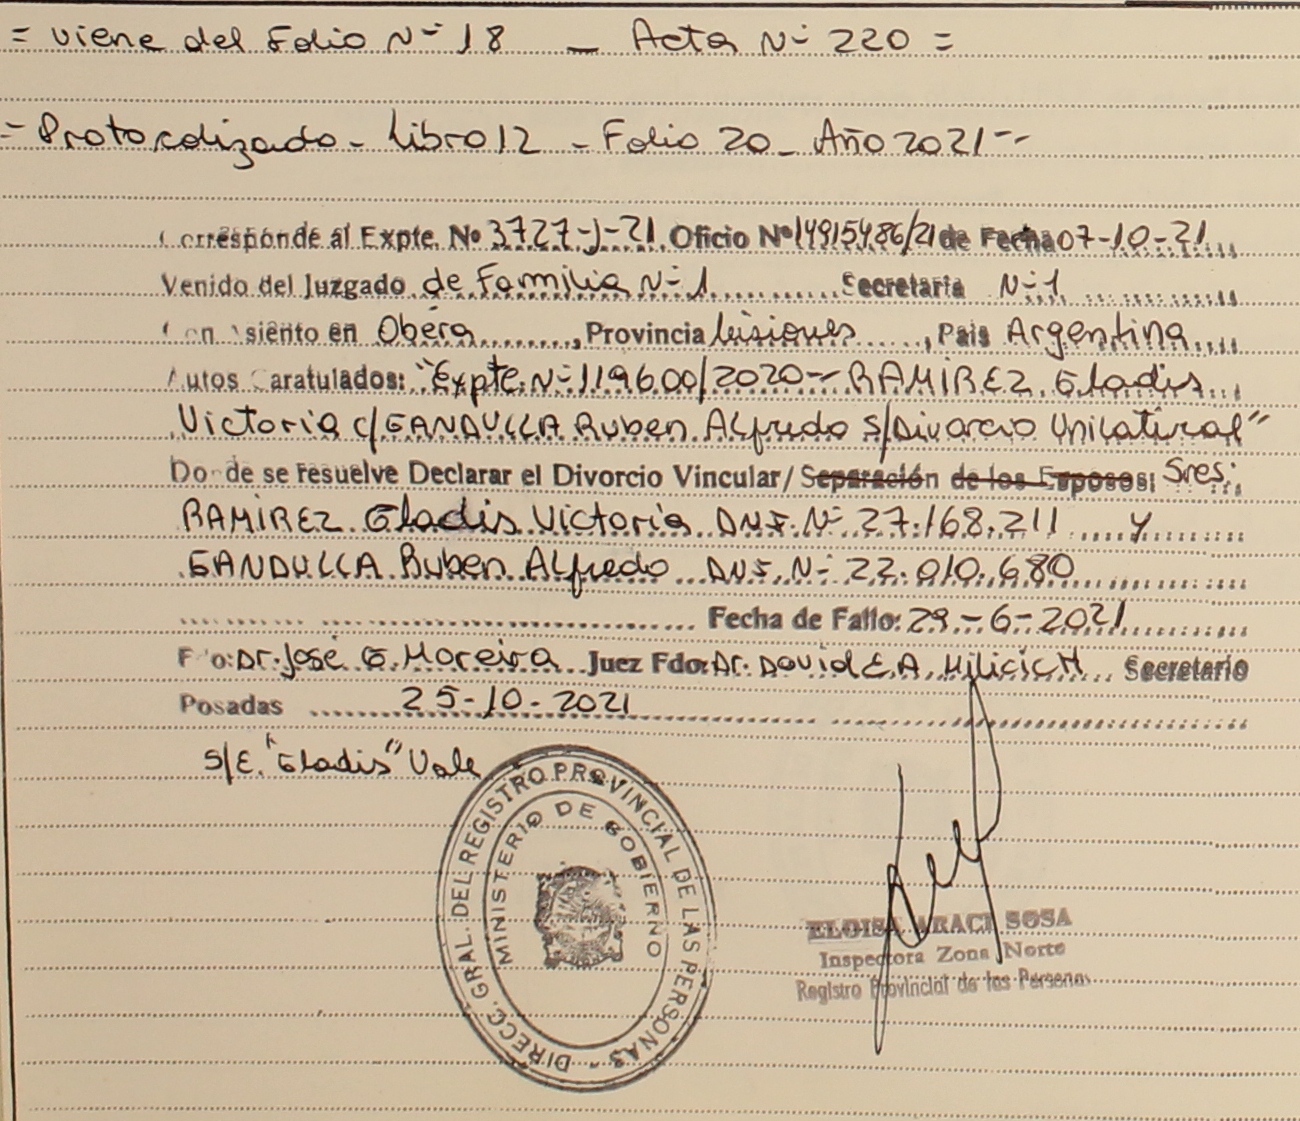 = viene del Folio Nº 18 - Acta Nº 220 =
= Protocolizado - Libro 12 - Folio 20 - Año 2021 --
Corresponde al Expte. Nº 3727-J-21 Oficio Nº 14915486/21 de Fecha 07-10-21
Venido del Juzgado de Familia Nº 1 Secretaria Nº 1
Con Asiento en Oberá, Provincia Misiones, Pais Argentina
Autos Caratulados: "Expte. Nº 119600/2020 - RAMIREZ Gladis
Victoria c/ GANDULLA Ruben Alfredo S/Divorcio Unilateral"
Donde se resuelve Declarar el Divorcio Vincular/ Separación de los Esposos: Sres:
RAMIREZ Gladis Victoria DNI. Nº 27.168.211 y
GANDULLA Ruben Alfredo DNI. Nº 22.010.680
Fecha de Fallo: 29-6-2021
Fdo: Dr. José G. Moreira Juez Fdo: Dr. David E. A. Milicich Secretario
Posadas 25-10-2021
S/E. "Gladis" Vale
DIRECC. GRAL. DEL REGISTRO PROVINCIAL DE LAS PERSONAS -
MINISTERIO DE GOBIERNO
ELOISA ARACI SOSA
Inspectora Zona Norte
Registro Provincial de las Personas